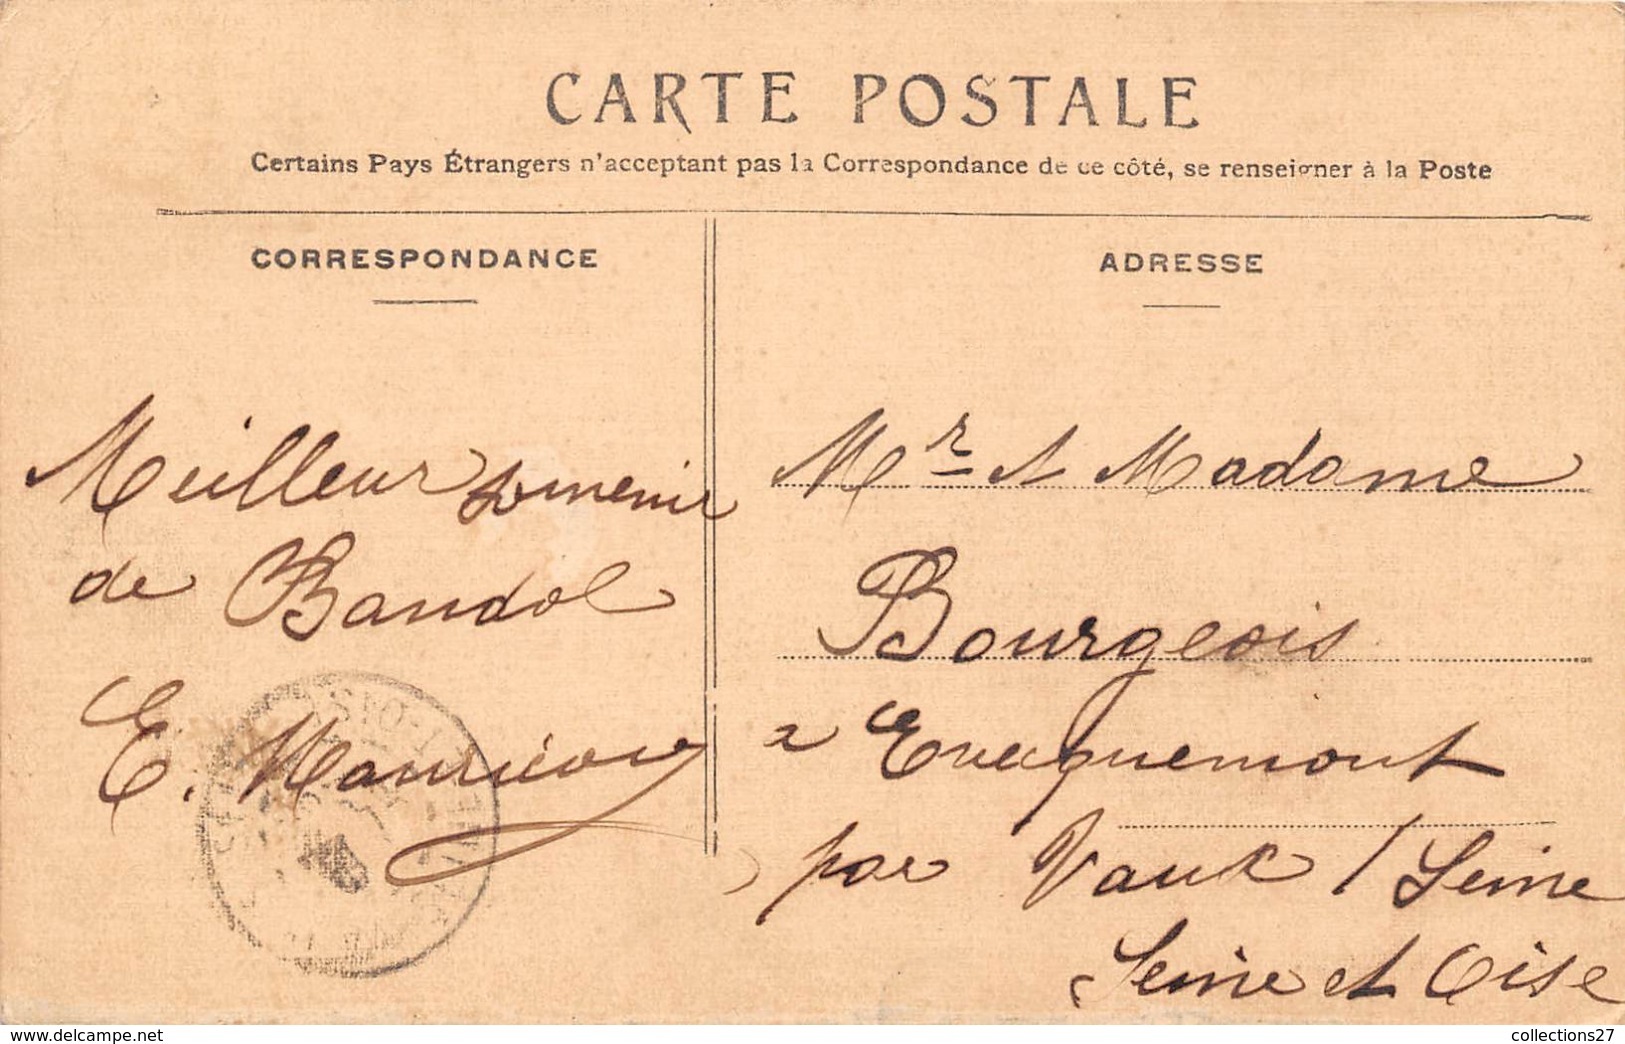 CARTE POSTALE
Certains Pays Étrangers n'acceptant pas la Correspondance de ce côté, se renseigner à la Poste
CORRESPONDANCE
Meilleur souvenir
de Bandol
E.
ADRESSE
Mr et Madame
Bourgeois
à Evecquemont
par Vaux / Seine
Seine et Oise
www.delcampe.net
collections27